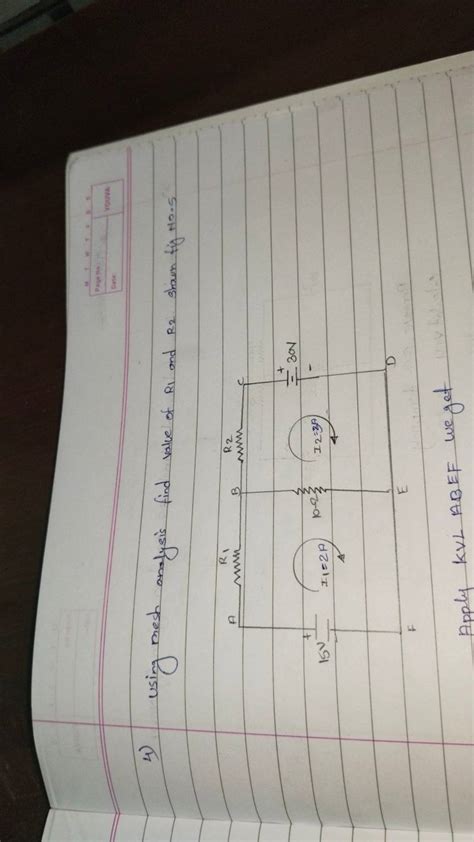 Page No.
Date:
YOUVA
4) Using mesh analysis find value of R1 and R2 shown fig No.5
A R1 B R2 C
15V + I1=2A 10Ω I2=3A + 30V -
F E D
Apply KVL ABEF we get